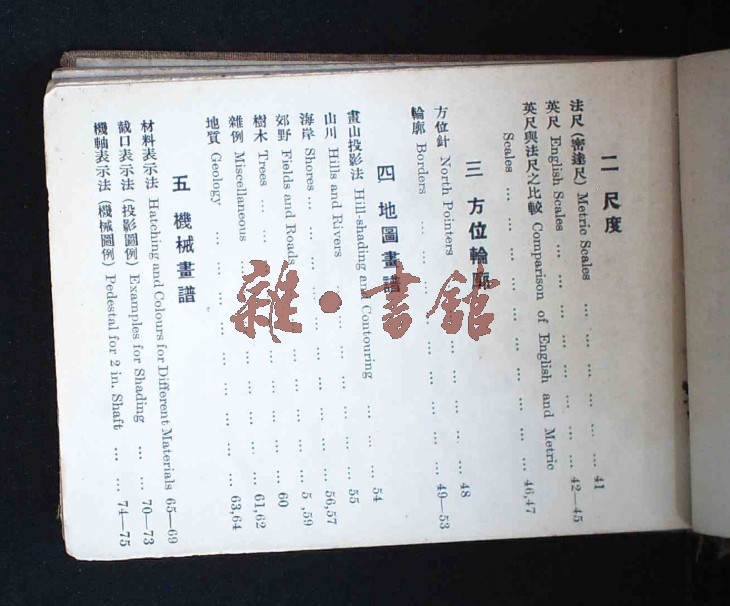 二 尺度
法尺 (密達尺) Metric Scales ... ... ... ... ... ... 41
英尺 English Scales ... ... ... ... ... ... ... 42—45
英尺與法尺之比較 Comparison of English and Metric
Scales ... ... ... ... ... ... ... ... 46,47
三 方位輪廓
方位針 North Pointers ... ... ... ... ... ... 48
輪廓 Borders ... ... ... ... ... ... ... 49—53
四 地圖畫譜
畫山投影法 Hill-shading and Contouring ... ... ... 54
山川 Hills and Rivers ... ... ... ... ... ... 55
海岸 Shores ... ... ... ... ... ... ... ... 56,57
郊野 Fields and Roads ... ... ... ... ... ... 5 ,59
樹木 Trees ... ... ... ... ... ... ... ... 60
雜例 Miscellaneous ... ... ... ... ... ... 61,62
地質 Geology ... ... ... ... ... ... ... 63,64
五 機械畫譜
材料表示法 Hatching and Colours for Different Materials 65—69
截口表示法 (投影圖例) Examples for Shading ... ... 70—73
機軸表示法 (機械圖例) Pedestal for 2 in. Shaft ... ... 74—75
雜·書館